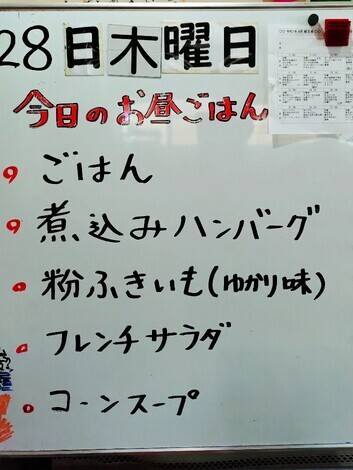 28日木曜日
今日のお昼ごはん
ごはん
煮込みハンバーグ
粉ふきいも(ゆかり味)
フレンチサラダ
コーンスープ